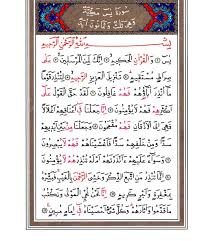 سورة يس مكية
وهي ثلاث وثمانون آية
بِسْمِ اللهِ الرَّحْمٰنِ الرَّحِيمِ
يس وَالْقُرْآنِ الْحَكِيمِ إِنَّكَ لَمِنَ الْمُرْسَلِينَ عَلَى
صِرَاطٍ مُسْتَقِيمٍ تَنْزِيلَ الْعَزِيزِ الرَّحِيمِ لِتُنْذِرَ قَوْمًا
مَا أُنْذِرَ آبَاؤُهُمْ فَهُمْ غَافِلُونَ لَقَدْ حَقَّ الْقَوْلُ عَلَى
أَكْثَرِهِمْ فَهُمْ لَا يُؤْمِنُونَ إِنَّا جَعَلْنَا فِي أَعْنَاقِهِمْ أَغْلَالًا
فَهِيَ إِلَى الْأَذْقَانِ فَهُمْ مُقْمَحُونَ وَجَعَلْنَا مِنْ بَيْنِ أَيْدِيهِمْ
سَدًّا وَمِنْ خَلْفِهِمْ سَدًّا فَأَغْشَيْنَاهُمْ فَهُمْ لَا يُبْصِرُونَ
وَسَوَاءٌ عَلَيْهِمْ أَأَنْذَرْتَهُمْ أَمْ لَمْ تُنْذِرْهُمْ لَا يُؤْمِنُونَ
إِنَّمَا تُنْذِرُ مَنِ اتَّبَعَ الذِّكْرَ وَخَشِيَ الرَّحْمٰنَ بِالْغَيْبِ فَبَشِّرْهُ
بِمَغْفِرَةٍ وَأَجْرٍ كَرِيمٍ إِنَّا نَحْنُ نُحْيِ الْمَوْتَى وَنَكْتُبُ
مَا قَدَّمُوا وَآثَارَهُمْ وَكُلَّ شَيْءٍ أَحْصَيْنَاهُ فِي إِمَامٍ مُبِينٍ